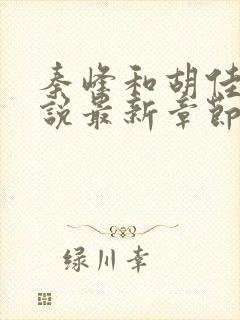 秦峰和胡佳
說最新章節
绿川幸